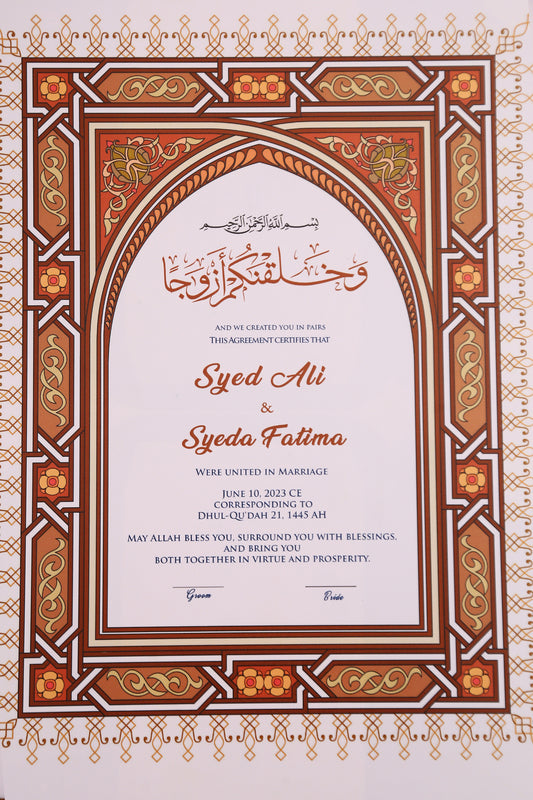 بِسْمِ اللَّهِ الرَّحْمَٰنِ الرَّحِيمِ
وَخَلَقْنَكُمْ أَزْوَٰجًا
AND WE CREATED YOU IN PAIRS
THIS AGREEMENT CERTIFIES THAT
Syed Ali
&
Syeda Fatima
WERE UNITED IN MARRIAGE
JUNE 10, 2023 CE
CORRESPONDING TO
DHUL-QU'DAH 21, 1445 AH
MAY ALLAH BLESS YOU, SURROUND YOU WITH BLESSINGS,
AND BRING YOU
BOTH TOGETHER IN VIRTUE AND PROSPERITY.
Groom Bride